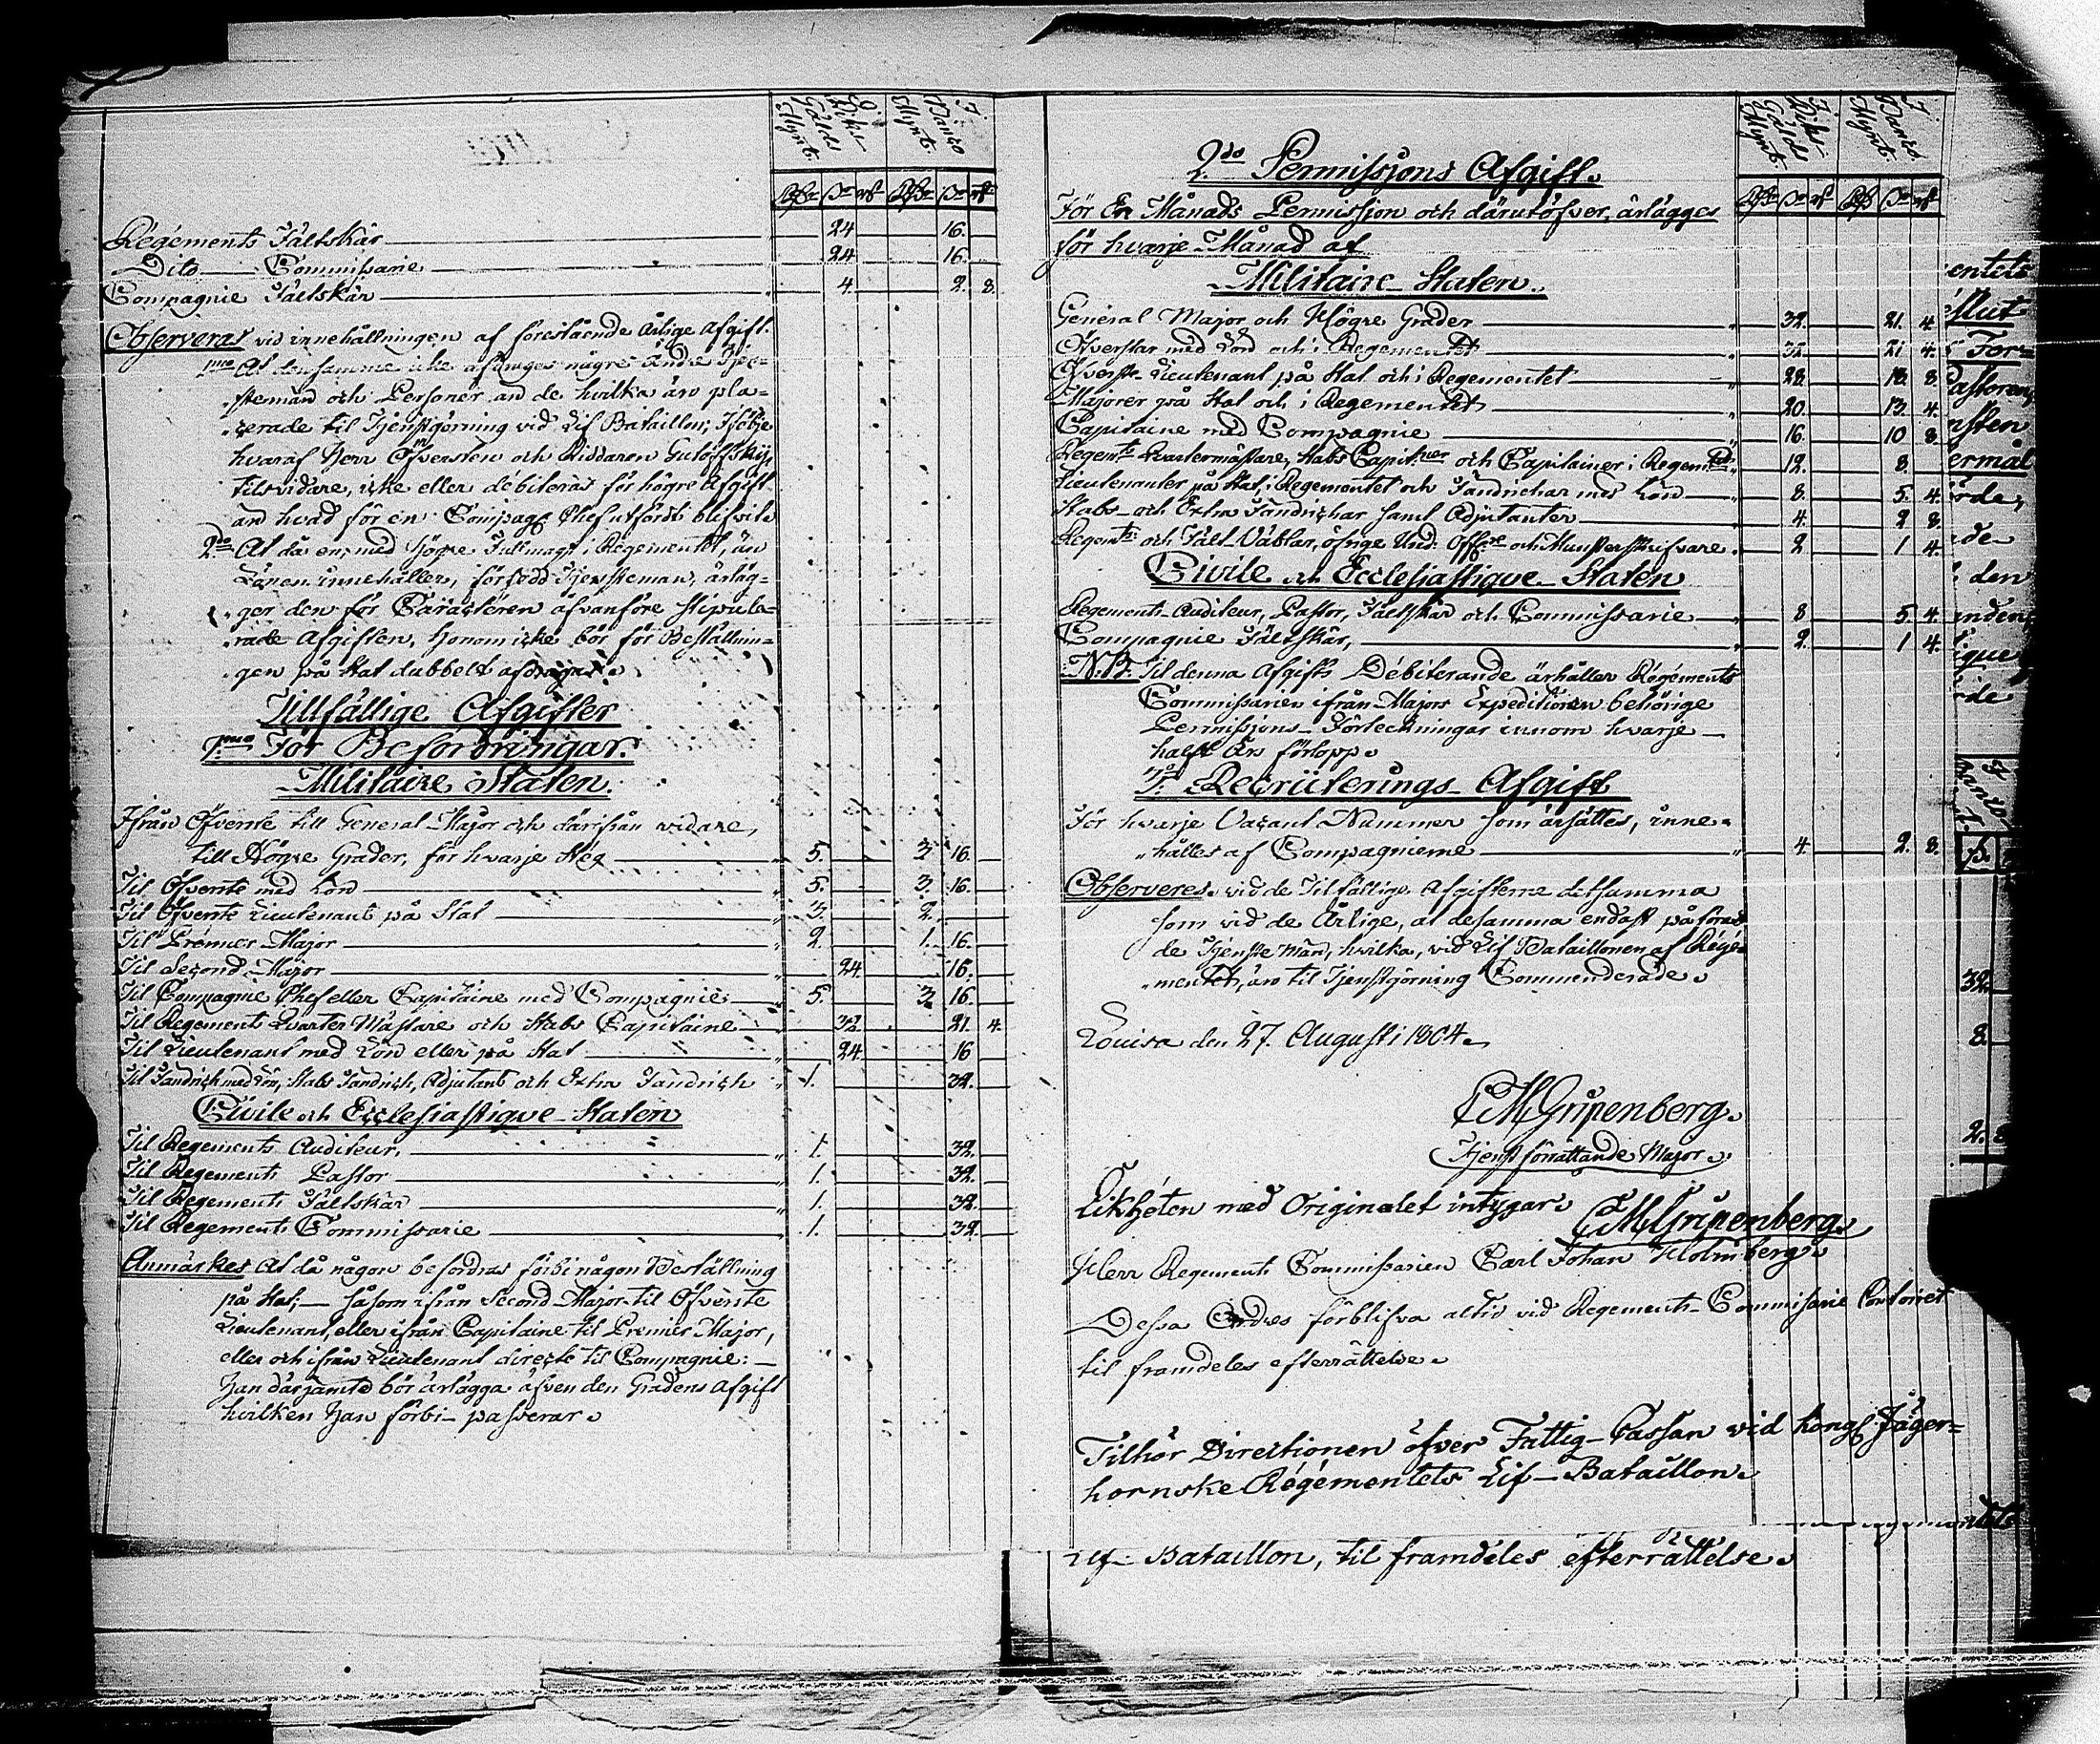 I Riks-
Gälds
Mynt.
I
Banco
Mynt.
Regements Fältskär 24 16.
Dito Commissarie 24 16.
Compagnie Fältskär 4. 2. 8.
Observeras vid innehållningen af förestående Årlige Afgift.
1mo At densamma icke afdrages några andra Tjen-
stemän och Personer än de hvilka äro pla-
cerade til Tjenstgörning vid Lif Bataillon; Ifölje
hvaraf Herr Öfversten och Riddaren Gutoffsky,
tilsvidare, icke eller debiteras för högre Afgift
än hvad för en Compag: Chef utfördt blifvit.
2do At då en, med högre Fullmagt i Regementet, än
Lönen innehåller, försedd Tjensteman, årläg-
ger den för Caracteren afvanföre stipule-
rade Afgiften, honom icke bör för Beställnin-
gen på Stat dubbelt afdragas.
Tillfällige Afgifter
1mo För Befordringar.
Militaire Staten.
Ifrån Öfverste till General-Major och därifrån vidare,
till Högre Grader, för hvarje Steg 5. 3. 16.
Til Öfverste med Lön 5. 3. 16.
Til Öfverste Lieutenant på Stat 3. 2.
Til Premier Major 2. 1. 16.
Til Second-Major 24. 16.
Til Compagnie Chef eller Capitaine med Compagnie 5. 3. 16.
Til Regements Qvarter Mästare och Stabs Capitaine 32. 21. 4.
Til Lieutenant med Lön eller på Stat 24. 16
Til Fändrich med Lön, Stabs Fändrich, Adjutant och Extra Fändrich 1. 32.
Civile och Ecclesiastique-Staten
Til Regements Auditeur, 1. 32.
Til Regements Pastor 1. 32.
Til Regements Fältskär 1. 32.
Til Regements Commissarie 1. 32.
Anmärkes At då någon befordras förbi någon Beställning
på Stat; såsom ifrån Second-Major til Öfverste
Lieutenant, eller ifrån Capitaine til Premier Major,
eller och ifrån Lieutenant directe til Compagnie:
han därjämte bör årlägga äfven den Gradens Afgift
hvilken han förbi-passerar.
I Riks-
Gälds
Mynt.
I
Banco
Mynt.
2do Permissions Afgift.
För En Månads Permission och därutöfver, årlägges
för hvarje Månad af
Militaire-Staten.
General Major och Högre Grader 32. 21. 4.
Öfverstar med Lön och i Regementet 32. 21. 4.
Öfverste-Lieutenant på Stat och i Regementet 28. 18. 8.
Majorer på Stat och i Regementet 20. 13. 4.
Capitaine med Compagnie 16. 10 8.
Regemts Qvartermästare, Stabs Capit:ner och Capitainer i Regem:tet 12. 8.
Lieutenanter på Stat, i Regementet och Fändrichar med Lön 8. 5. 4.
Stabs- och Extra Fändrichar samt Adjutanter 4. 2 8.
Regemts och Fält-Väblar, öfrige Und: Offic:re och Munsterskrifvare 2 1 4.
Civile och Ecclesiastique-Staten
Regements-Auditeur, Pastor, Fältskär och Commissarie 8 5. 4.
Compagnie Fältskär, 2. 1 4.
N:B: Til denna Afgifts Debiterande århåller Regements
Commissarien ifrån Majors Expeditionen behörige
Permissions-Förteckningar innom hvarje
halft Års förlopp.
3o Recruterings-Afgift
För hvarje Vacant Nummer som årsättes, inne-
hålles af Compagnierne 4. 2. 8.
Observeres, vid de Tilfällige Afgifterne detsamma
som vid de Årlige, at desamma endast påföras
de Tjenste Män, hvilka, vid Lif Bataillonen af Rege-
mentet, äro til Tjenstgörning Commenderade.
Lovisa den 27. Augusti 1804.
CM Gripenberg.
Tjenst förrättande Major.
Likheten med Originalet intygar. CM Gripenberg.
Herr Regements Commissarien Carl Johan Holmberg.
Dessa Ordres förblifva altid vid Regements-Commissarie Contoiret
til framdeles efterrättelse.
Tilhör Directionen öfver Fattig-Cassan vid Kongl: Jäger-
hornske Regementets Lif-Bataillon.
Lif-Bataillon, til framdeles efterrättelse.